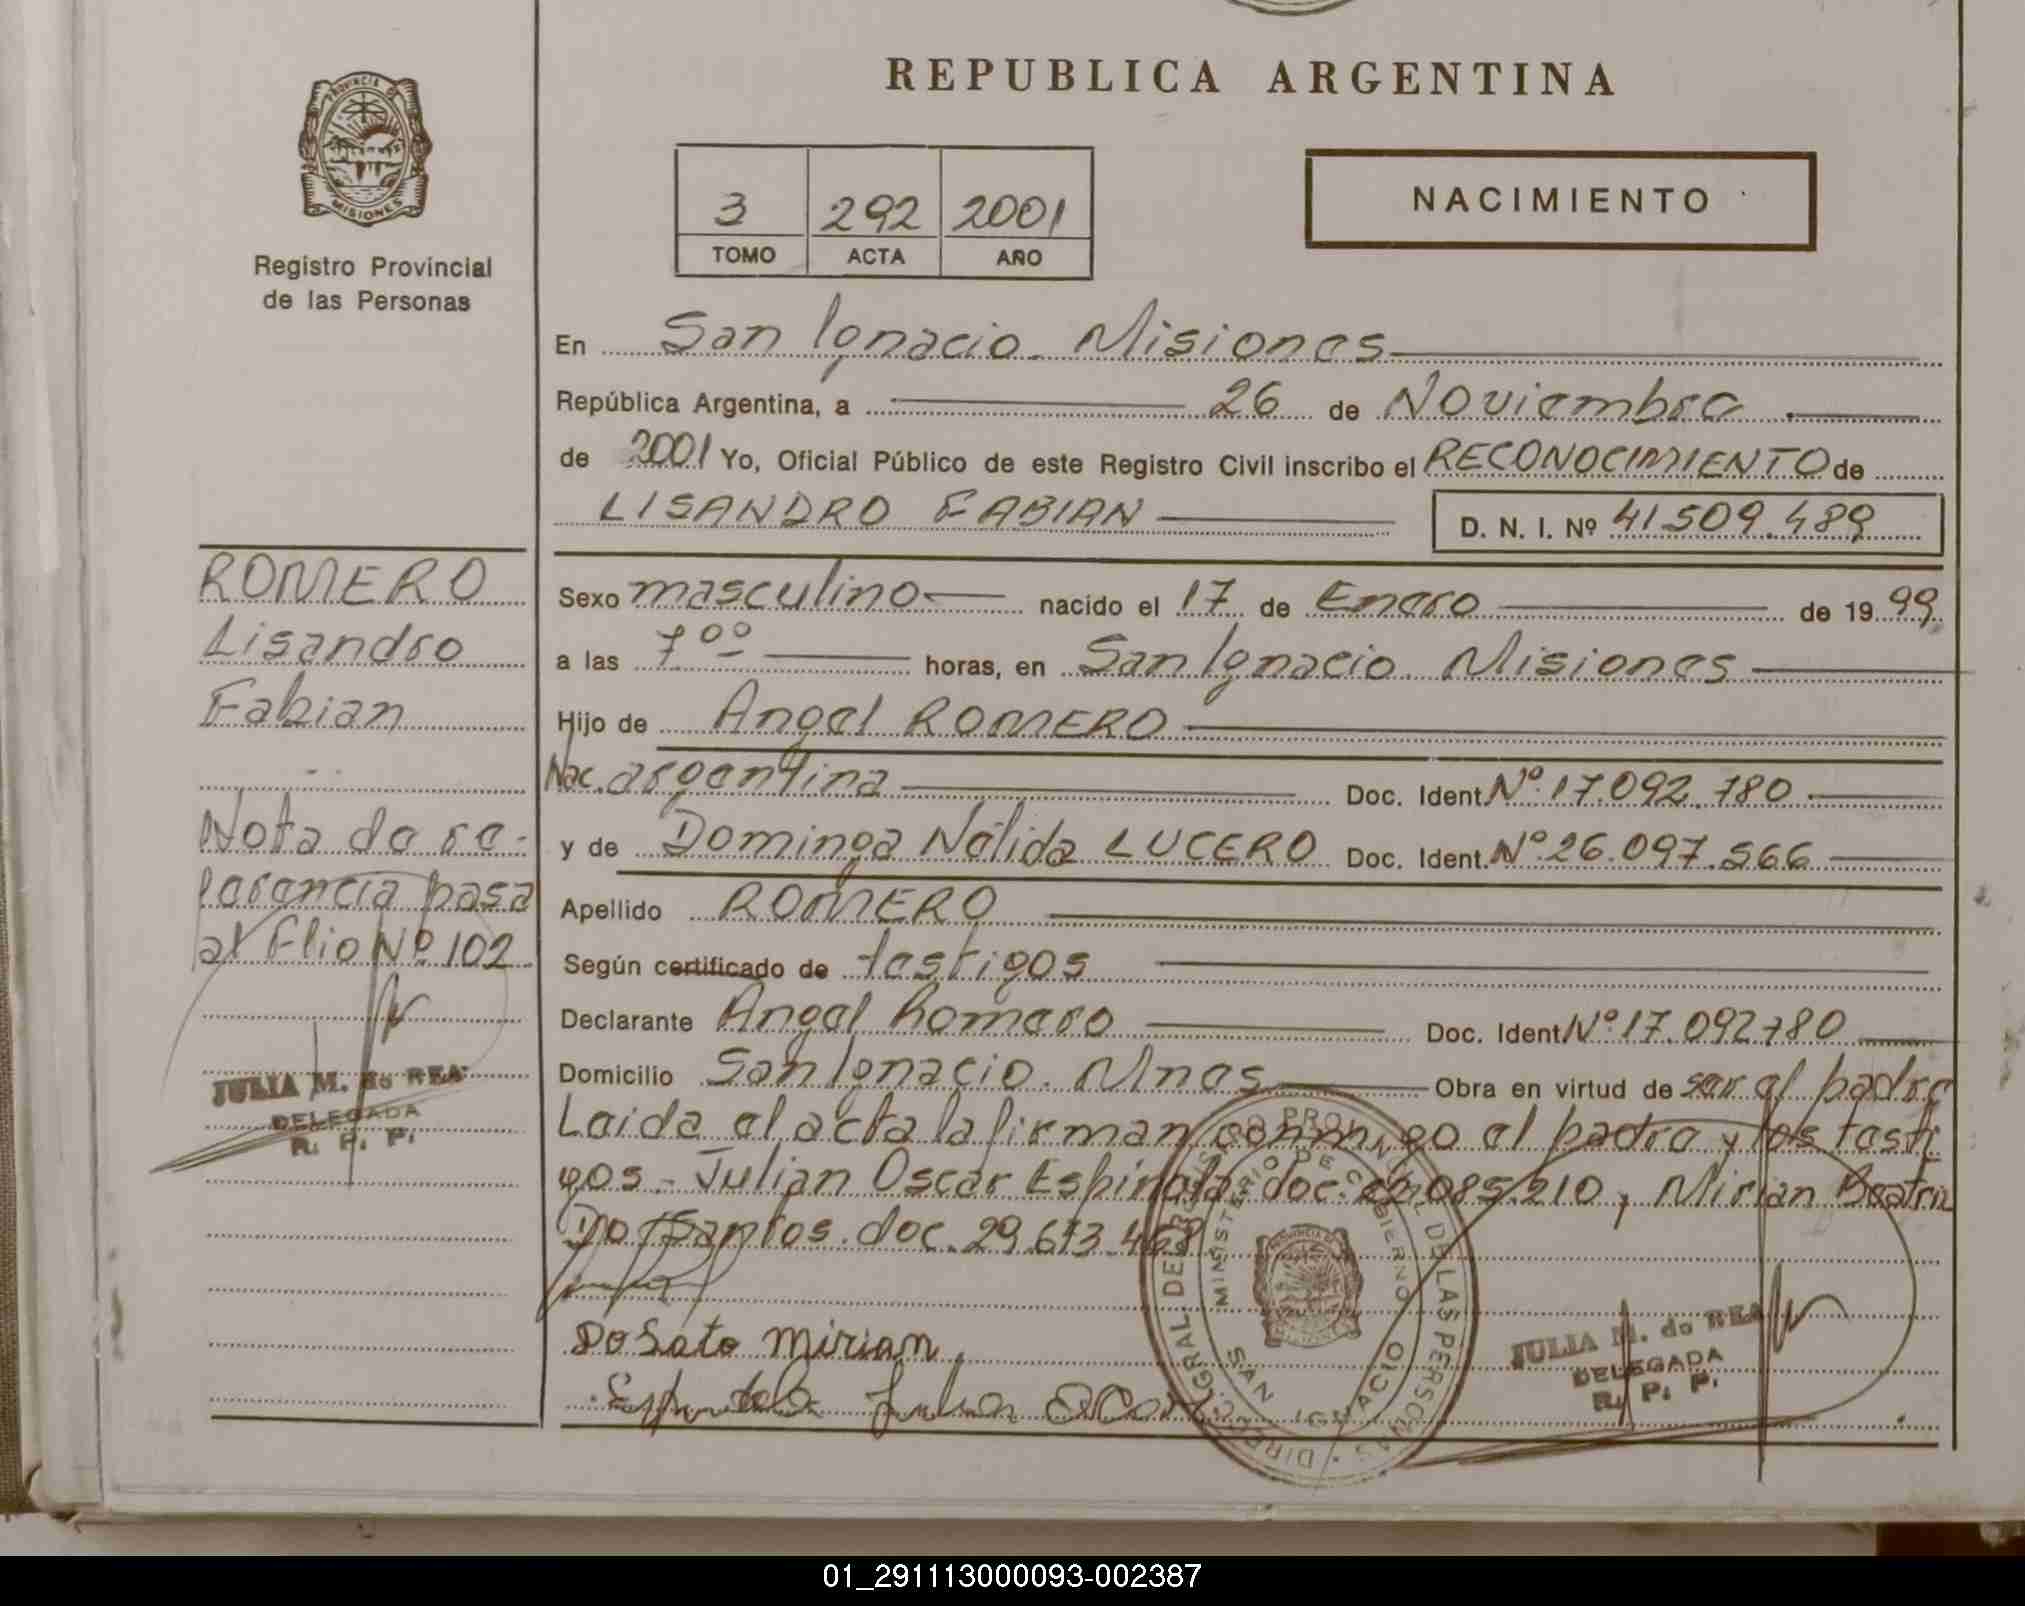 REPUBLICA ARGENTINA
PROVINCIA DE
MISIONES
Registro Provincial
de las Personas
3 292 2001
TOMO ACTA AÑO
NACIMIENTO
En San Ignacio. Misiones
República Argentina, a 26 de Noviembre
de 2001 Yo, Oficial Público de este Registro Civil inscribo el RECONOCIMIENTO de
LISANDRO FABIAN D. N. I. Nº 41.509.489
ROMERO
Lisandro
Fabian
Nota de re-
ferencia pasa
al Flio Nº 102
JULIA M. do REA
DELEGADA
R. P. P.
Sexo masculino nacido el 17 de Enero de 1999
a las 7 00 horas, en San Ignacio. Misiones
Hijo de Angel ROMERO
Nac. argentina Doc. Ident. Nº 17.092.780
y de Dominga Nélida LUCERO Doc. Ident. Nº 26.097.566
Apellido ROMERO
Según certificado de testigos
Declarante Angel Romero Doc. Ident. Nº 17.092.780
Domicilio San Ignacio. Mnes Obra en virtud de ser el padre
Leida el acta la firman conmigo el padre y los testi
gos - Julian Oscar Espindola doc. 085.210, Mirian Beatriz
Do Santos. doc. 29.673.468
Do Sato Mirian
Espindola Julian Oscar
DIREC. GRAL. DE REGISTRO PROVINCIAL DE LAS PERSONAS
MINISTERIO DE GOBIERNO
SAN IGNACIO
JULIA M. do REA
DELEGADA
R. P. P.
01_291113000093-002387